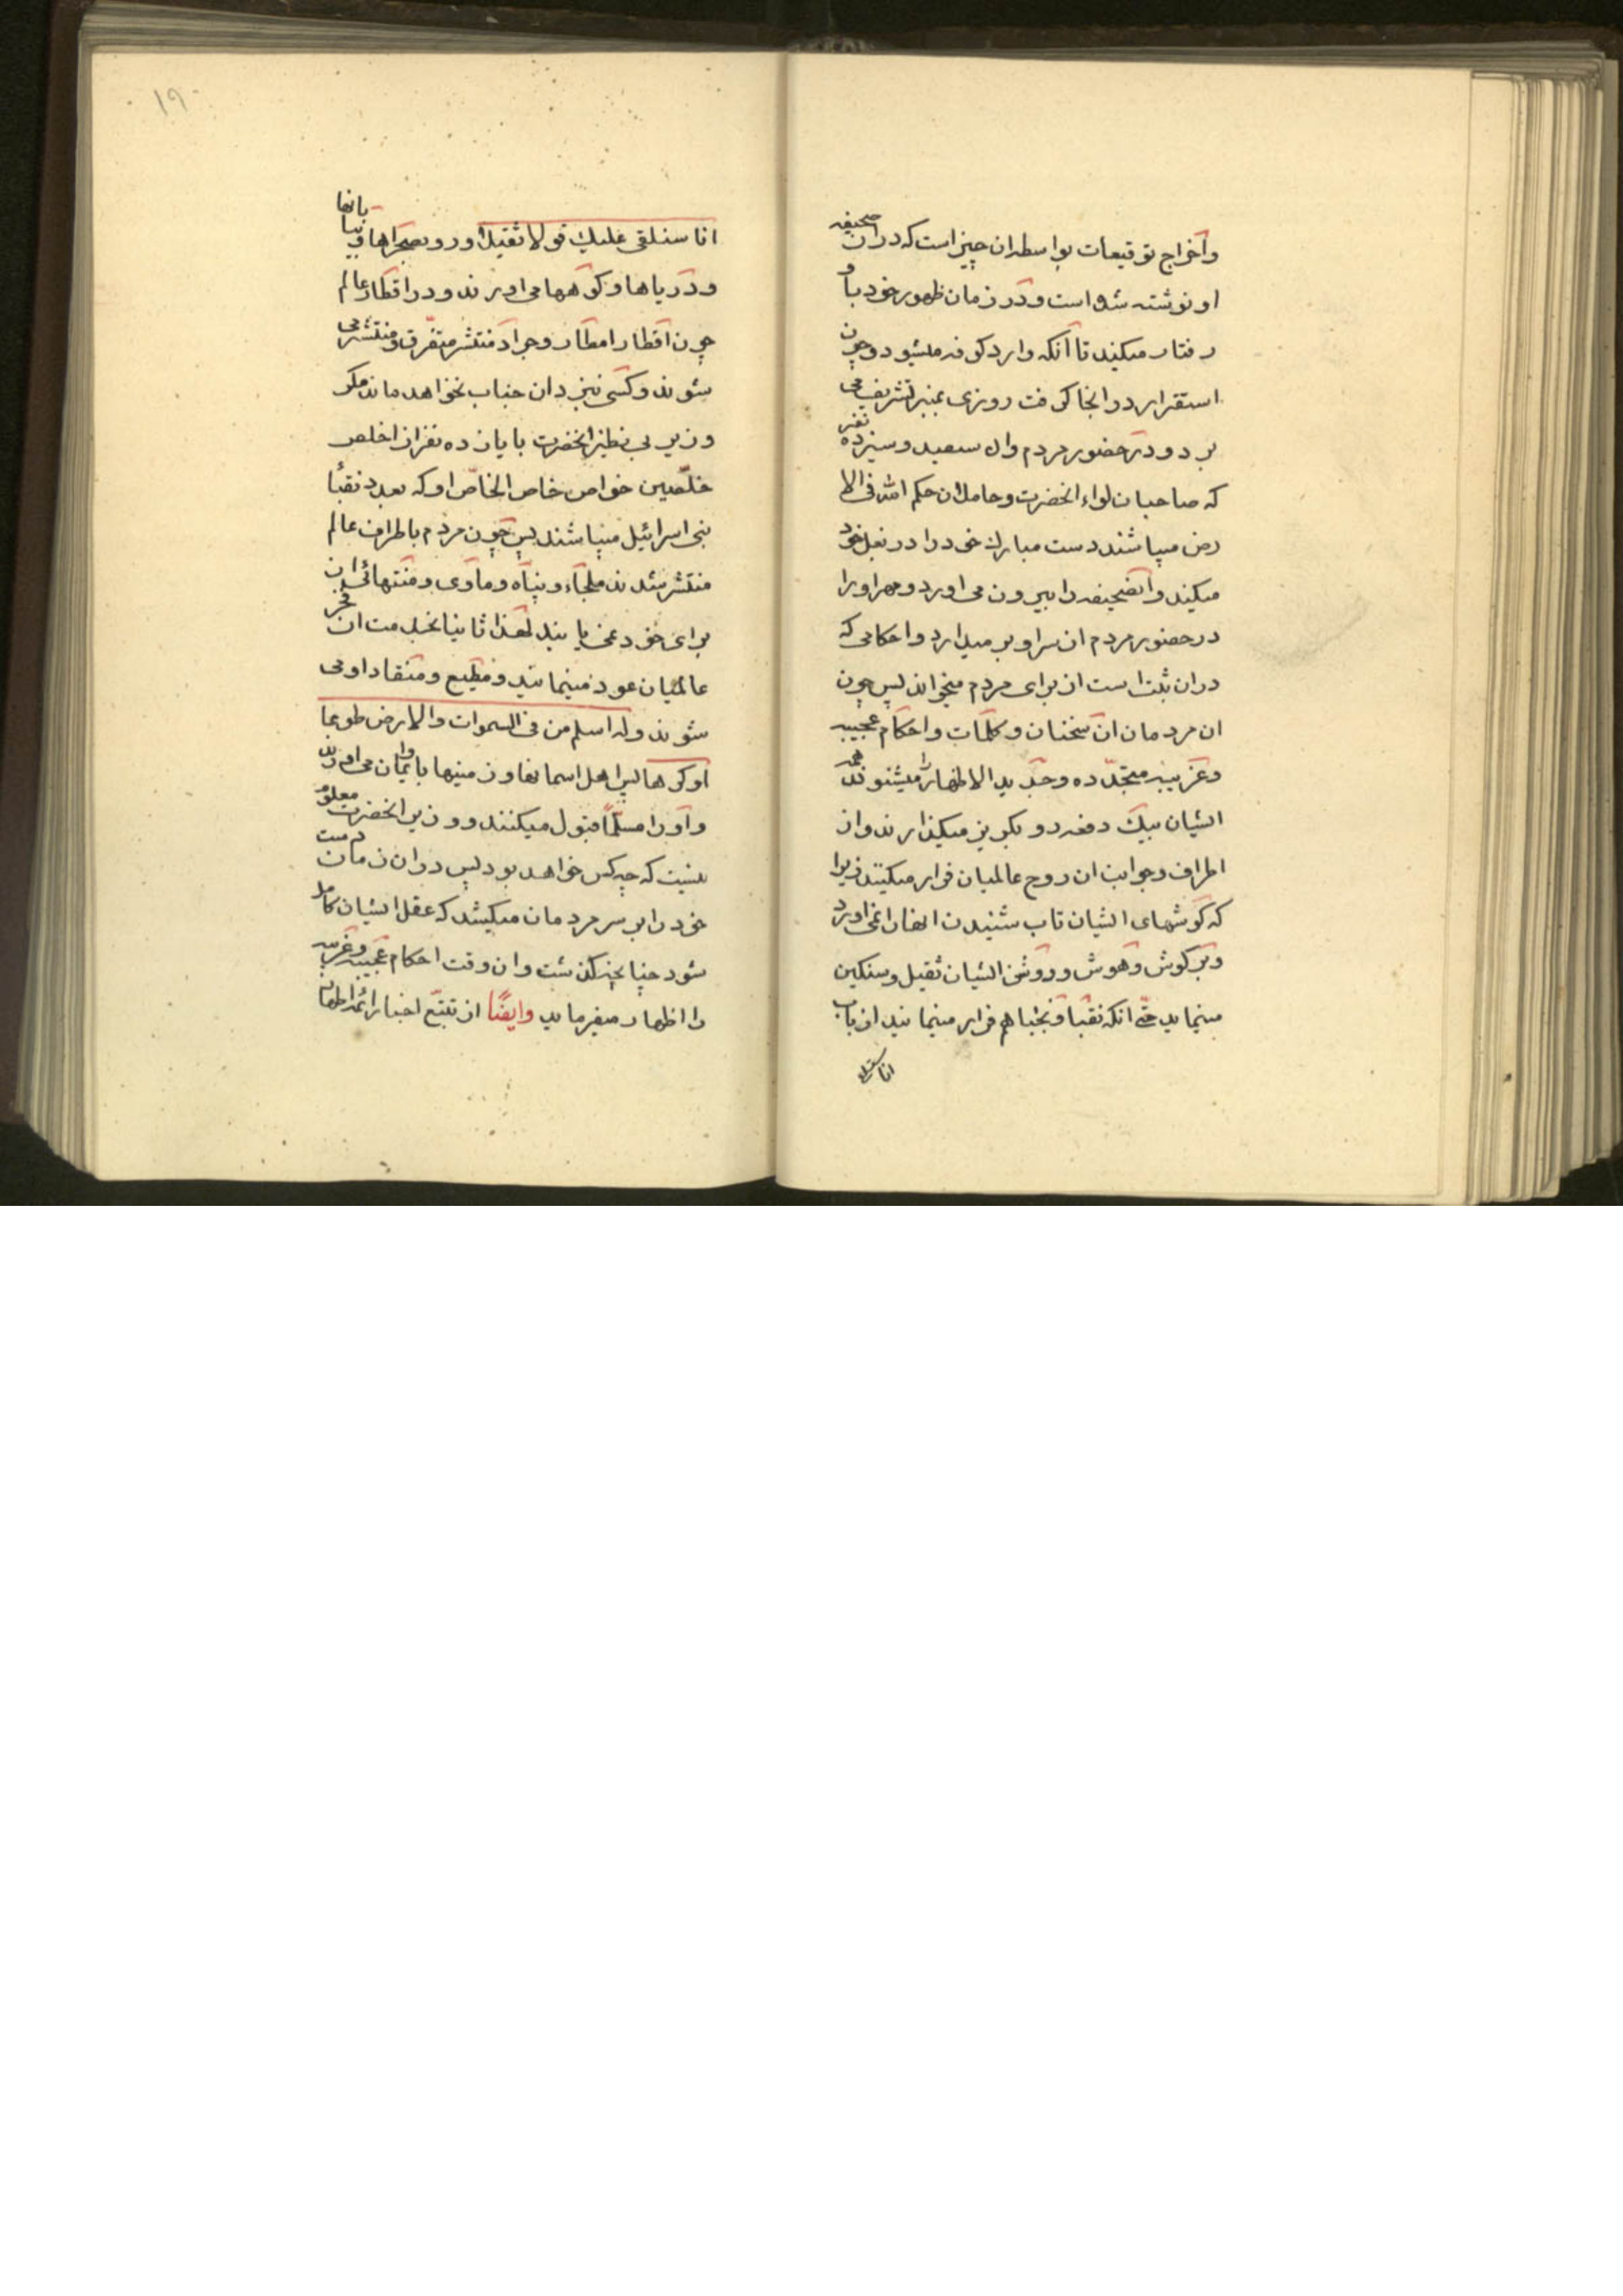 واخراج توقیعات بواسطه ان چیز است که دران صحیفه
او نوشته شده است ودر زمان ظهور خود باو
رفتار میکند تا آنکه وارد کوفه میشود وچون
استقرار در انجا کرفت روزی بمنبر تشریف می
برد ودر حضور مردم وان سیصد وسیزده نفر
که صاحبان لواء انحضرت وحاملان حکم الله فی الا
رض میباشند دست مبارك خود را در بغل خود
میکند وانصحیفه را بیرون می اورد ومهر اورا
در حضور مردم از سر او بر میدارد واحکامی که
دران ثبت است از برای مردم میخواند پس چون
ان مردمان ان سخنان وکلمات واحکام عجیبه
وغریبه متجدده وجدید الاظهار را میشنوند همه
ایشان بیك دفعه رو بکریز میکذارند واز
اطراف وجوانب ان روح عالمیان فرار میکنند زیرا
که کوشهای ایشان تاب شنیدن انهارا نمی اورد
وبر کوش وهوش وروشن ایشان ثقیل وسنکین
مینماید حتی انکه نقبا ونجبا هم فرار مینمایند از باب
انا سنلقی
۱۹۰
انا سنلقی علیك قولا ثقیلا ورو بصحراها وبیابانها
ودریاها وکوهها می اورند ودر اقطار عالم
چون اقطار امطار وجراد منتشر متفرق ومنتشر می
شوند وکسی نزد ان جناب نخواهد ماند مکر
وزیر بی نظیر انحضرت با یازده نفر از اخلص
مخلصین خواص خاص الخاص او که بعدد نقبأ
بنی اسرائیل میباشند پس چون مردم باطراف عالم
منتشر شدند ملجاء وپناه وماوی ومنتهائی
برای خود نمی یابند لهذا ثانیا بخدمت ان فخر
عالمیان عود مینمایند ومطیع ومنقاد او می
شوند وله اسلم من فی السموات والارض طوعا
او کرها پس اهل اسمانها وزمینها باو ایمان می اورند
واورا مسلما قبول میکنند ووزیر انحضرت معلوم
نیست که چه کس خواهد بود پس دران زمان دست
خود را بر سر مردمان میکشد که عقل ایشان کامل
شود چنانچه کذشت وان وقت احکام عجیبه وغریبه
را اظهار میفرماید وایضًا از تتبع اخبار ائمه اطهار